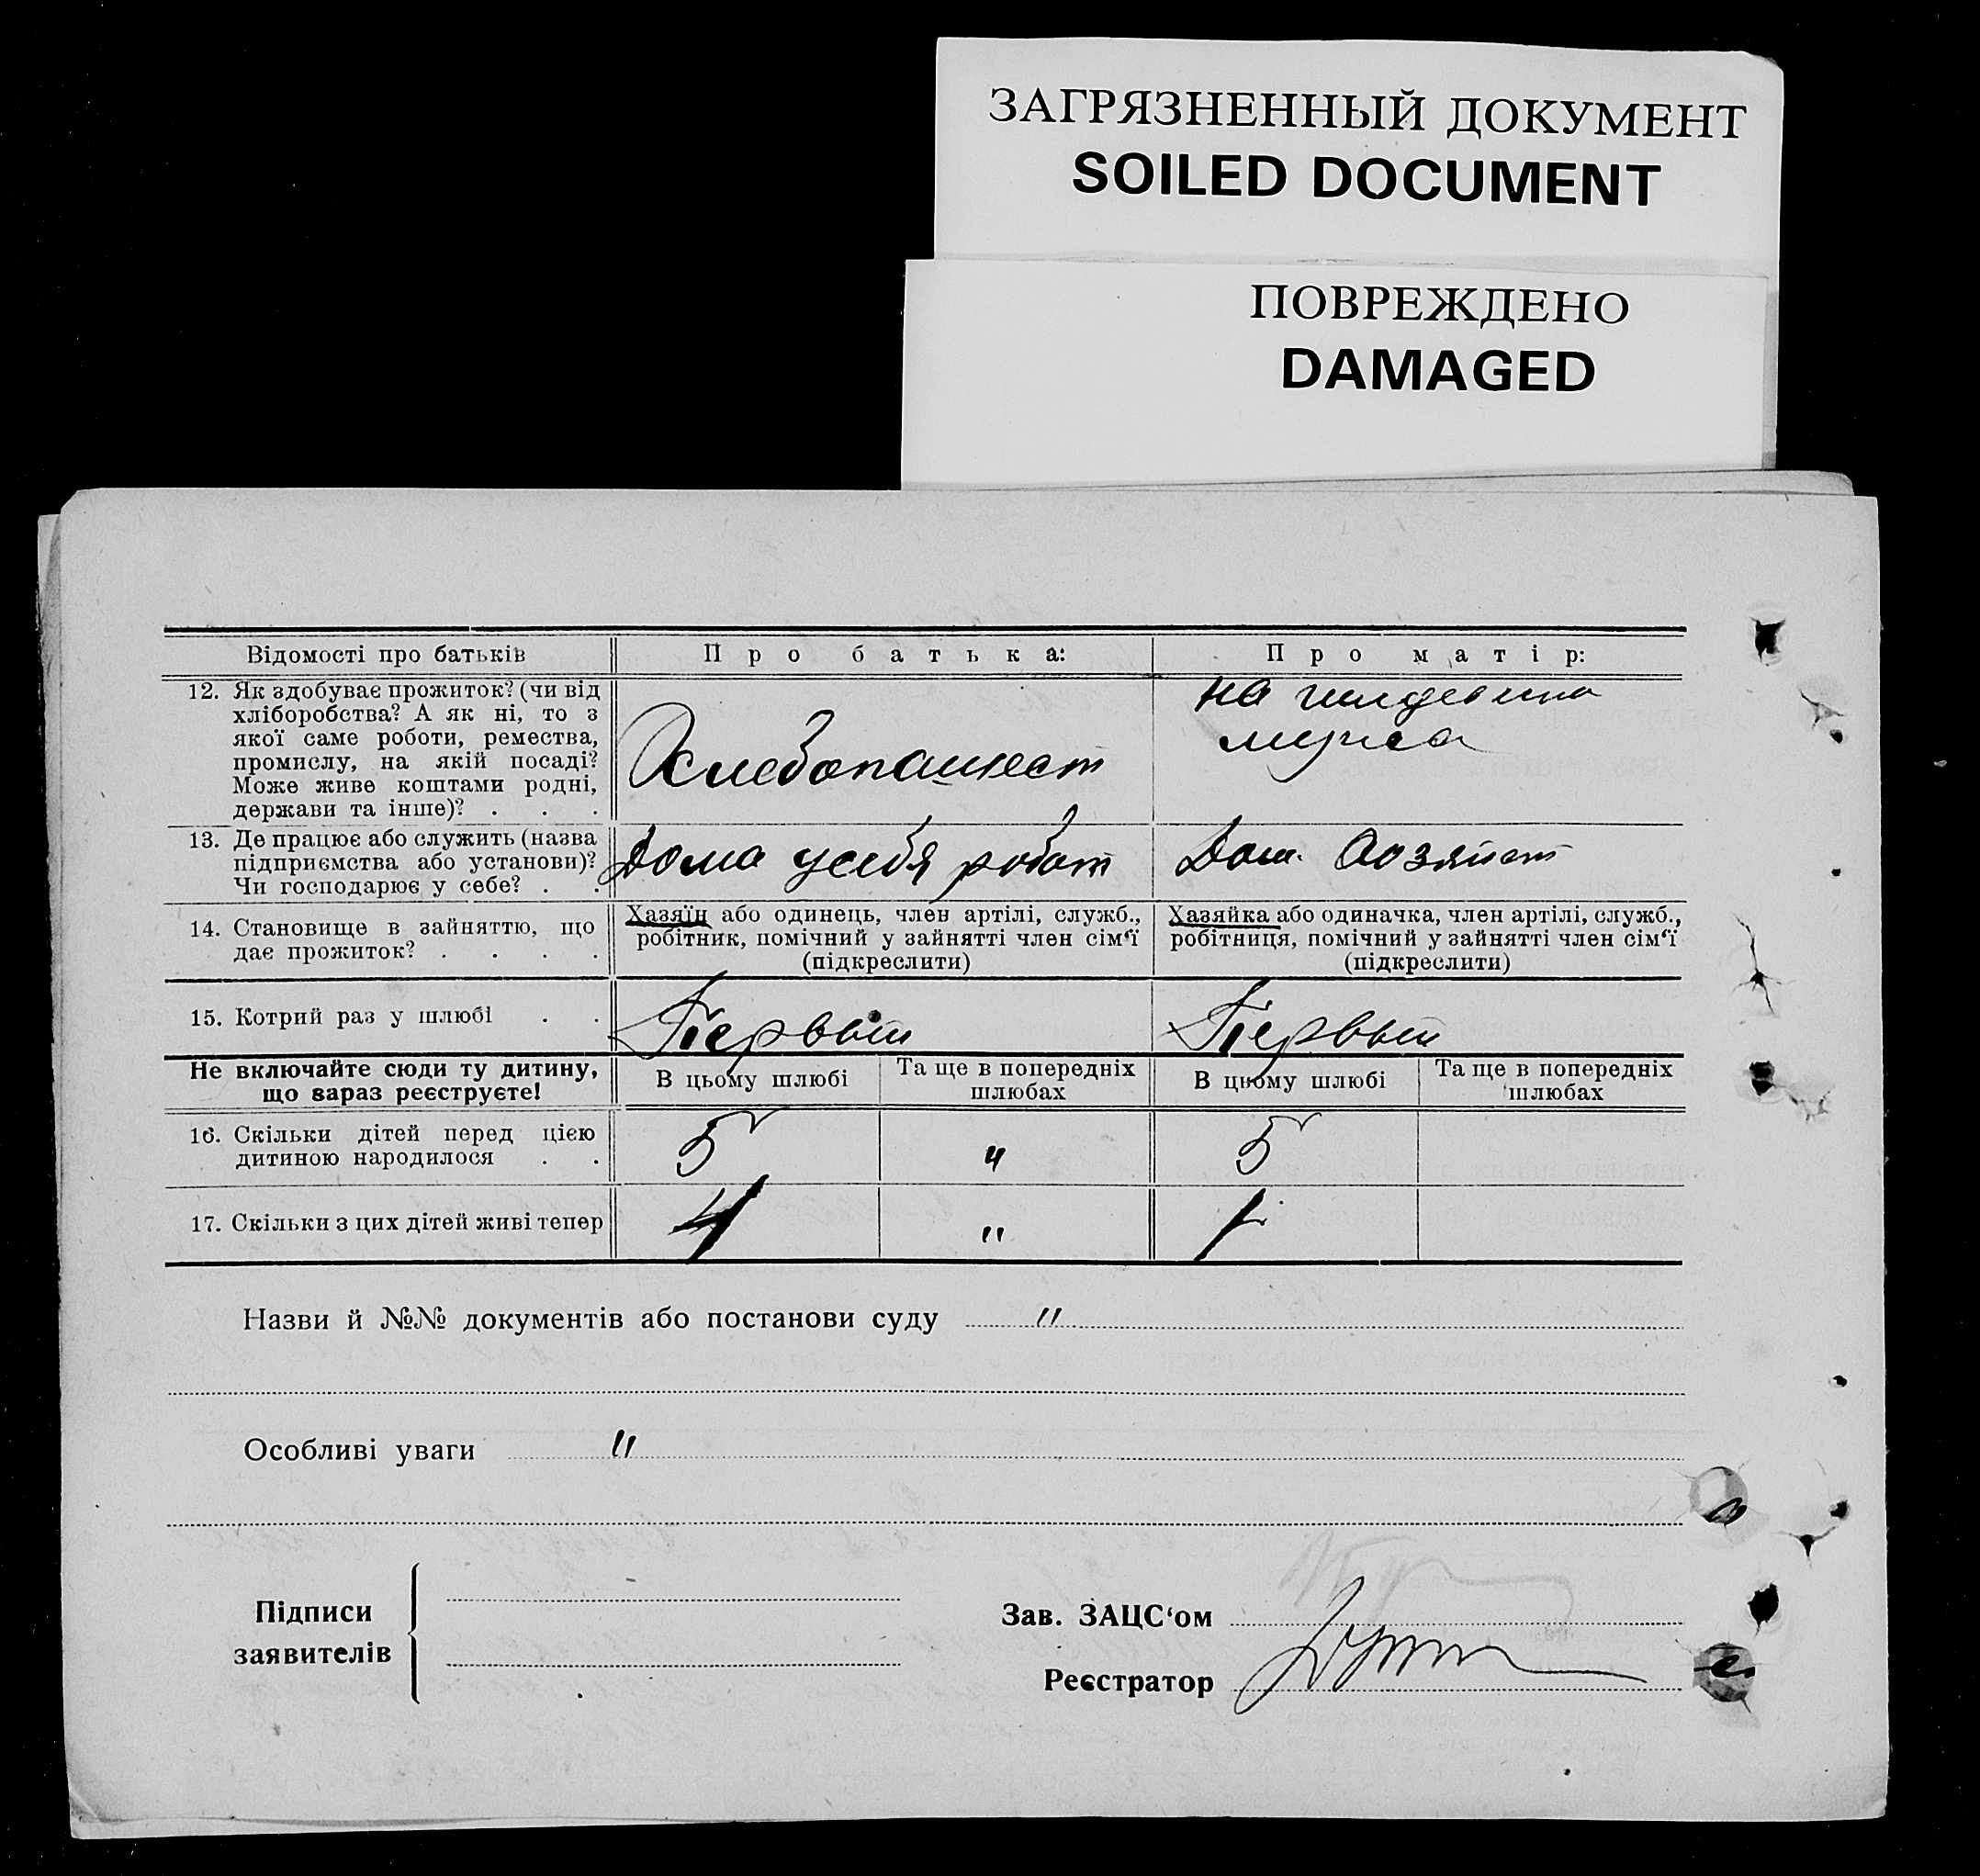 ЗАГРЯЗНЕННЫЙ ДОКУМЕНТ
SOILED DOCUMENT
ПОВРЕЖДЕНО
DAMAGED
Відомості про батьків
Про батька:
Про матір:
12. Як здобуває прожиток? (чи від
хліборобства? А як ні, то з
якої саме роботи, ремества,
промислу, на якій посаді?
Може живе коштами родні,
держави та інше)? . . .
Хлебопашест
на
мужа
13. Де працює або служить (назва
підприємства або установи)?
Чи господарює у себе? . .
Дома у себя робот
Дом. Хозяйст
14. Становище в зайняттю, що
дає прожиток? . . . .
Хазяїн або одинець, член артілі, служб.,
робітник, помічний у зайнятті член сім‘ї
(підкреслити)
Хазяйка або одиначка, член артілі, служб.,
робітниця, помічний у зайнятті член сім‘ї
(підкреслити)
15. Котрий раз у шлюбі . .
Первый
Первый
Не включайте сюди ту дитину,
що зараз реєструєте!
В цьому шлюбі
Та ще в попередніх
шлюбах
В цьому шлюбі
Та ще в попередніх
шлюбах
16. Скільки дітей перед цією
дитиною народилося . .
5
"
5
17. Скільки з цих дітей живі тепер
4
"
Назви й №№ документів або постанови суду "
Особливі уваги "
Підписи
заявителів
Зав. ЗАЦС‘ом
Реєстратор